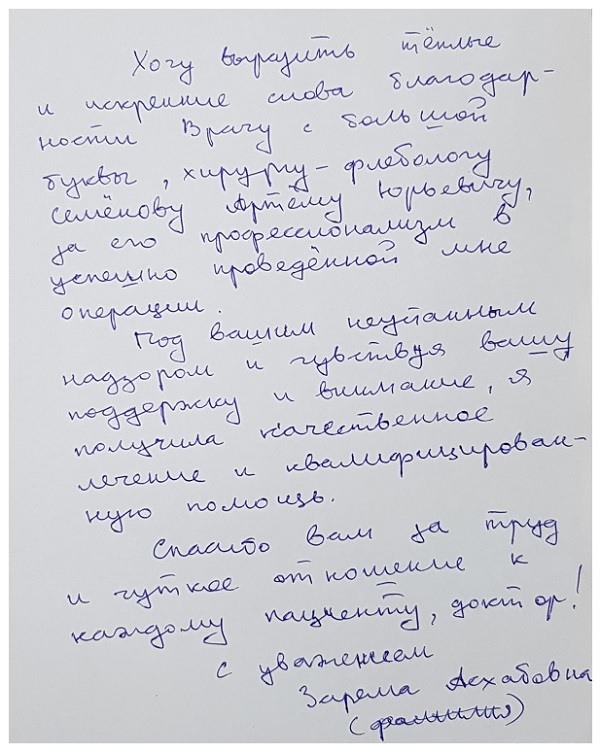 Хочу выразить тёплые
и искренние слова благодар-
ности Врачу с большой
буквы, хирургу-флебологу
Семёнову Артёму Юрьевичу,
за его профессионализм в
успешно проведённой мне
операции.
Под вашим неустанным
надзором и чувствуя вашу
поддержку и внимание, я
получила качественное
лечение и квалифицирован-
ную помощь.
Спасибо вам за труд
и чуткое отношение к
каждому пациенту, доктор!
с уважением
Зарема Асхабовна
(фамилия)